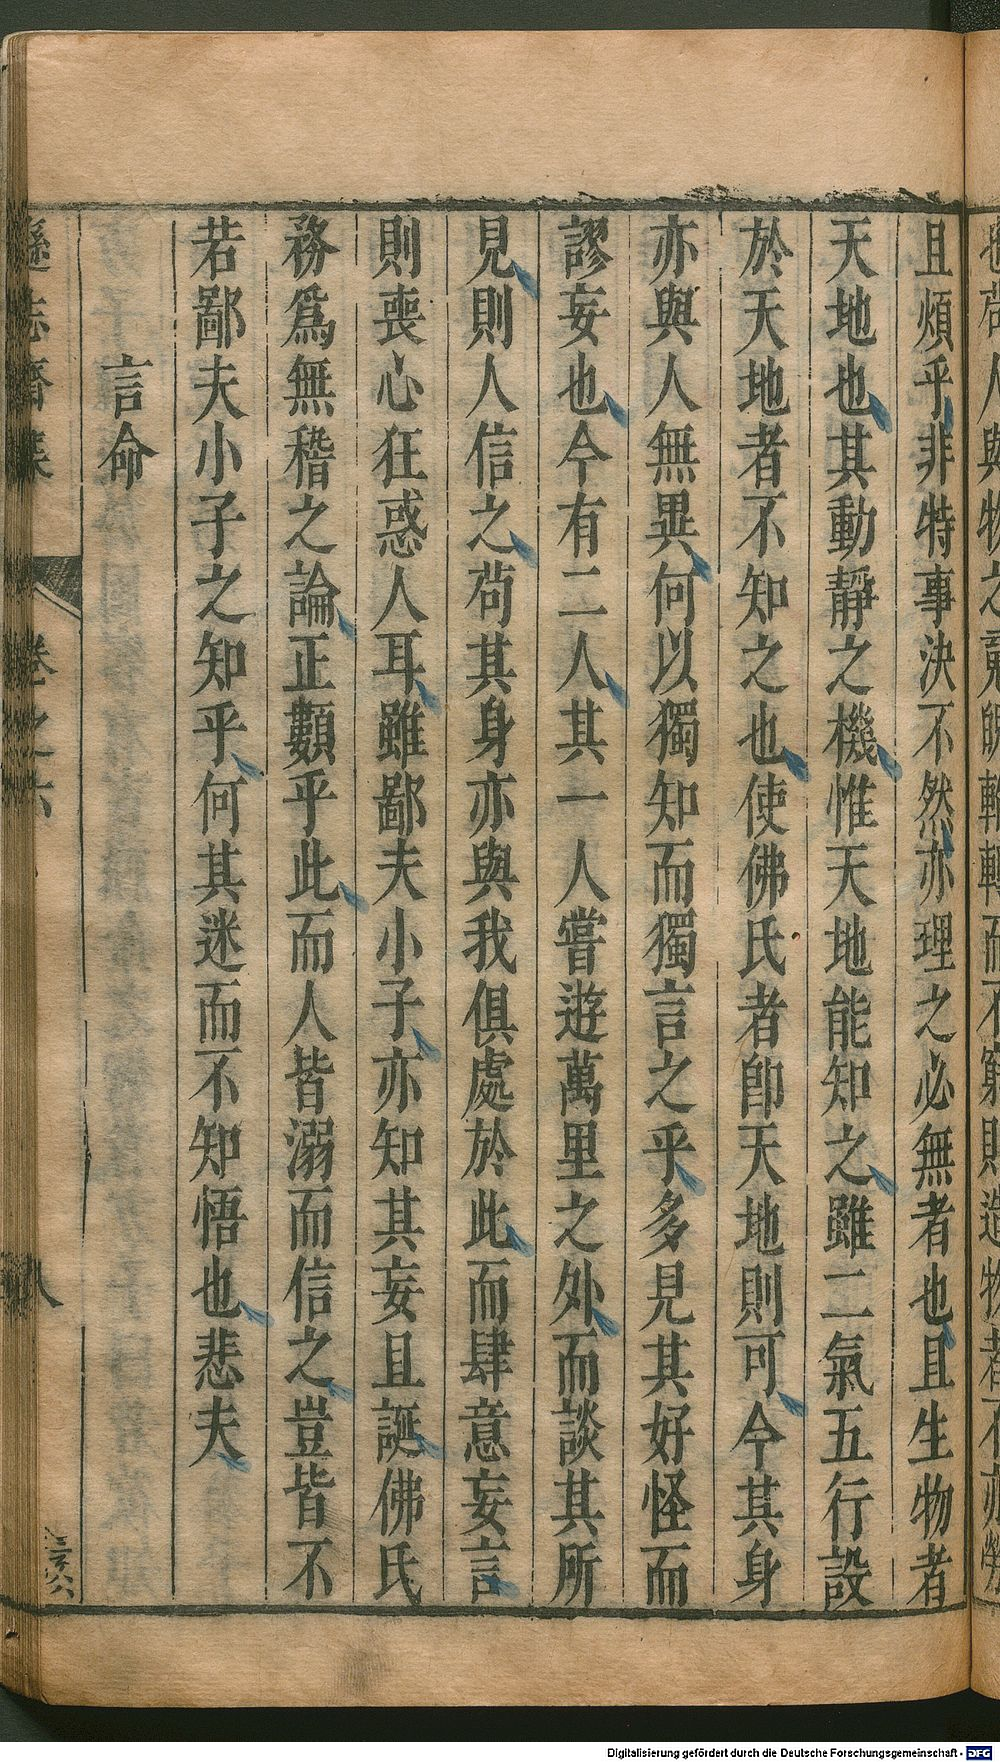 且煩乎非特事決不然亦理之必無者也且生物者
天地也其動靜之機惟天地能知之雖二氣五行設
於天地者不知之也使佛氏者卽天地則可今其身
亦與人無異何以獨知而獨言之乎多見其好怪而
謬妄也今有二人其一人嘗遊萬里之外而談其所
見則人信之苟其身亦與我俱處於此而肆意妄言
則喪心狂惑人耳雖鄙夫小子亦知其妄且誕佛氏
務爲無稽之論正類乎此而人皆溺而信之豈皆不
若鄙夫小子之知乎何其迷而不知悟也悲夫
言命
遜志齋集
卷之六
八
Digitalisierung gefördert durch die Deutsche Forschungsgemeinschaft - DFG